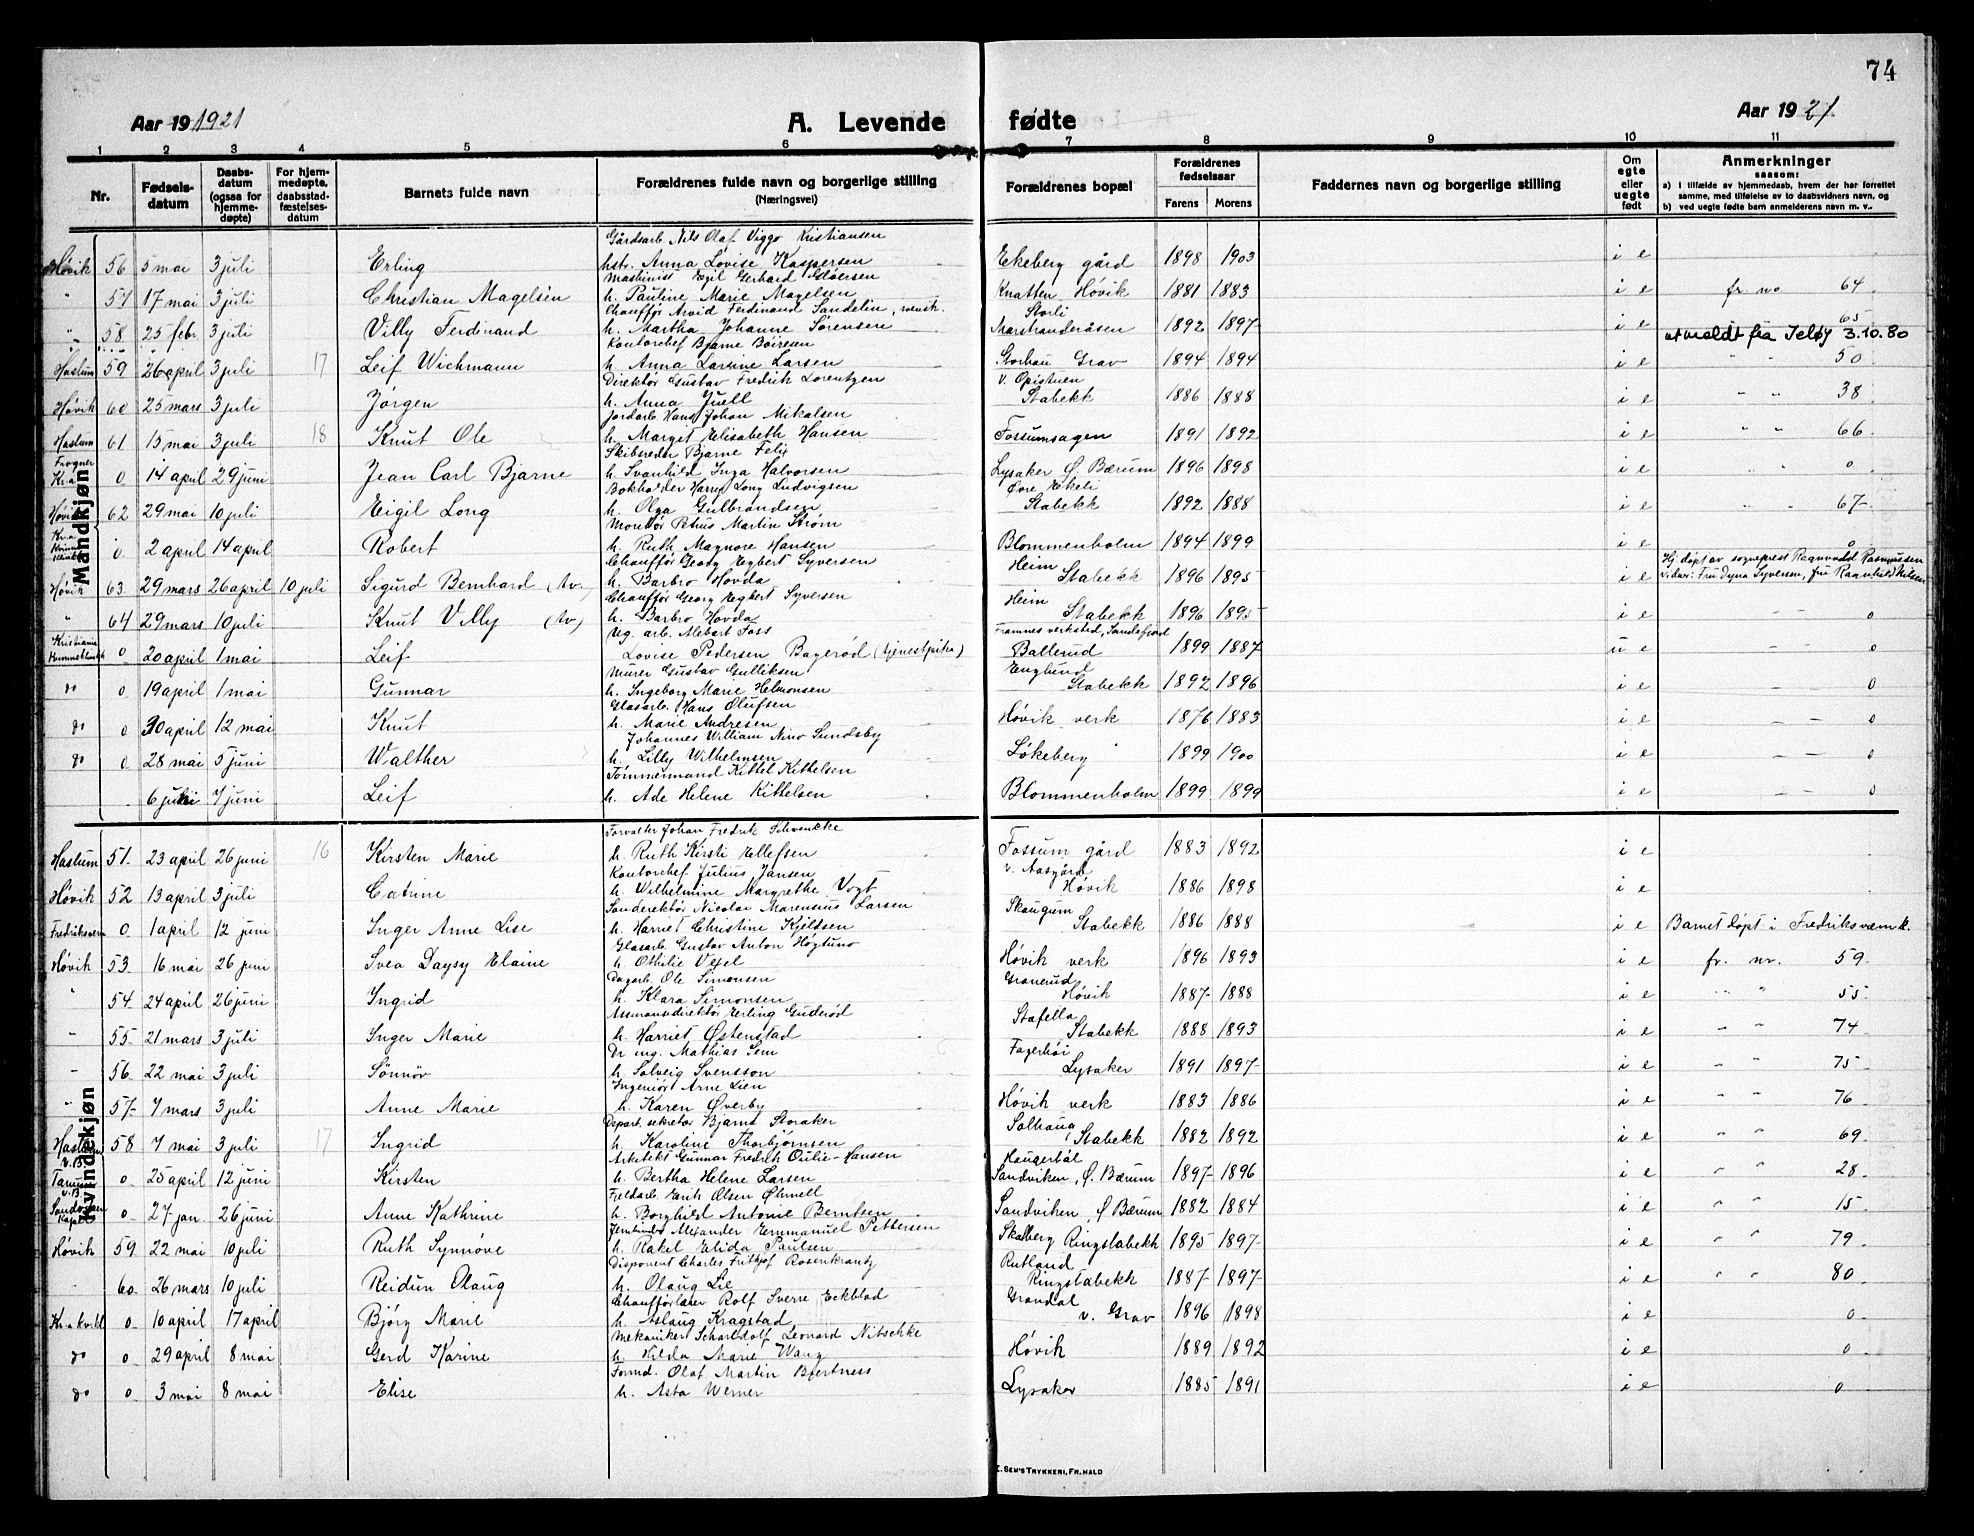 74
Aar 19 1921 A. Levende fødte Aar 1921.
1 2 3 4 5 6 7 8 9 10 11
Nr. Fødselsdatum Daabsdatum (ogsaa for hjemmedøpte) For hjemmedøpte, daabsstadfæstelsesdatum Barnets fulde navn Forældrenes fulde navn og borgerlige stilling (Næringsvei) Forældrenes bopæl Forældrenes fødselsaar Farens Morens Faddernes navn og borgerlige stilling Om egte eller uegte født Anmerkninger saasom:
a) i tilfælde av hjemmedaab, hvem der har forrettet samme, med tilføielse av to daabsvidners navn, og
b) ved uegte fødte barn anmelderens navn m. v.
Mandkjøn
Gårdsarb. Nils Olaf Viggo Kristiansen
Høvik 56 5 mai 3 juli Erling hstr. Anna Lovise Kaspersen Ekeberg gård 1898 1903 i e
Maskinist Egil Gerhard Gløersen
" 57 17 mai 3 juli Christian Magelsen h. Pauline Marie Magelsen Knatten Høvik 1881 1883 i e fr. no 64
Chauffør Arvid Ferdinand Sandelin, svensk. Storli
" 58 25 febr. 3 juli Villy Ferdinand h. Martha Johanne Sørensen Marstranderåsen 1892 1897 i e 65
utmeldt fra Jeløy 3.10.80
Kontorchef Bjarne Böiesen
Haslum 59 26 april 3 juli 17 Leif Wichmann h. Anna Larsine Larsen Storhau Grav 1894 1894 i e " " 50
Direktør Gustav Fredrik Lorentzen
Høvik 60 25 mars 3 juli Jørgen h. Anna Juell Stabekk 1886 1888 i e " " 38
Jordarb. Hans Johan Mikalsen
Haslum 61 15 mai 3 juli 18 Knut Ole h. Marget Elisabeth Hansen Fossumsagen 1891 1892 i e " " 66
Skibsreder Bjarne Felix
Frogner Kr.a 0 14 april 29 juni Jean Carl Bjarne h. Svanhild Inga Halvorsen Lysaker Ø. Bærum 1896 1898 i e " 0
Bokholder Harry Long Ludvigsen Øvre Ekeli
Høvik 62 29 mai 10 juli Eigil Long h. Olga Gulbrandsen Stabekk 1892 1888 i e " " 67
Montør Petrus Martin Strøm
0 2 april 14 april Robert h. Ruth Magnore Hansen Blommenholm 1894 1899 i e 0
Chauffør Georg Egbert Syversen Heim
Høvik 63 29 mars 26 april 10 juli Sigurd Bernhard (tv.) h. Barbro Hovda Stabekk 1896 1895 i e Hj. døpt av sogneprest Ragnvald Rasmussen
Vidner: Fru Dyna Syversen, fru Ragnhild Nilsen
Chauffør Georg Egbert Syversen Heim
" 64 29 mars 10 juli Knut Villy (tv) h. Barbro Hovda Stabekk 1896 1895 i e – – 0
Ug. arb. Albert Foss Framnes verksted, Sandefjord
Kristiania 0 20 april 1 mai Leif Lovise Pedersen Bagerød (tjenestpike) Ballerud 1899 1887 u e – – 0
Murer Gustav Gulliksen Englund
do 0 19 april 1 mai Gunnar h. Ingeborg Marie Helmonsen Stabekk 1892 1896 i e – – 0
Glasarb. Hans Olufsen
do 0 30 april 12 mai Knut h. Marie Andresen Høvik verk 1876 1883 i e – – 0
Johannes William Nino Sundsby
do 0 28 mai 5 juni Walther h. Lilly Wilhelmsen Løkeberg 1899 1900 i e – – 0
Tømmermand Kittel Kittelsen
6 juni 7 juni Leif h. Ade Helene Kittelsen Blommenholm 1899 1899 i e – – 0
Kvindekjøn
Forvalter Johan Fredrik Schvencke
Haslum 51. 23 april 26 juni 16 Kirsten Marie h. Ruth Kirsti Ellefsen Fossum gård 1883 1892 i e
Kontorchef Julius Jansen v. Aasgård
Høvik 52 13 april 3 juli Catrine h. Wilhelmine Margrethe Vogt Høvik 1886 1898 i e
Nicolai Marensius Larsen Skaugum
Fredriksvern 0. 1 april 12 juni Inger Anne Lise h. Harriet Christine Kjeldsen Stabekk 1886 1888 i e Barnet døpt i Fredriksværn k.
Glasarb. Gustav Anton Høgtuno
Høvik 53. 16 mai 26 juni Svea Daysy Elaine h Othilie Vexel Høvik verk 1896 1893 i e fr. nr. 59.
Dagarb. Ole Simonsen Granerud
" 54. 24 april 26 juni Ingrid h. Klara Simonsen Høvik 1887 1888 i e " " 55.
Assuransedirektør Erling Guderød Stafella
" 55. 21 mars 3 juli Inger Marie h. Harriet Østenstad Stabekk 1888 1893 i e " " 74
Dr ing. Mathias Sem Fagerhøi
" 56. 22 mai 3 juli Sönnöv h. Solveig Svensson Lysaker 1891 1897 i e " " 75
Ingeniør Arne Lien
" 57 7 mars 3 juli Anne Marie h. Karen Øverby Høvik verk 1883 1886 i e " " 76.
Depart. sekretær Bjarne Storaker Solhaug
Haslum 58 7 mai 3 juli 17 Ingrid h. Karoline Thorbjørnsen Stabekk 1882 1892 i e " " 69.
Arkitekt Gunnar Fredrik Oulie-Hansen
Tanum v. B. 0. 25 april 12 juni Kirsten h. Bertha Helene Larsen Sandviken, Ø. Bærum 1897 1896 i e " " 28
Erik Olsen Øhrnell
Sandviken Kapel 0. 27 jan. 26 juni Anne Kathrine h. Borghild Antonie Berntsen Sandviken, Ø Bærum 1882 1884 i e " " 15.
Alexander Emmanuel Pettersen
Høvik 59 22 mai 10 juli Ruth Synnøve h. Rakel Elida Paulsen Skalberg Ringstabekk 1895 1897 i e " " 79
Disponent Charles Frithjof Rosenkrantz Rutland
60. 26 mars 10 juli Reidun Olaug h. Olaug Lie Ringstabekk 1887 1897 i e " " 80
Chaufførlærer Rolf Sverre Eckblad Grandal
0. 10 april 17 april Bjørg Marie h. Aslaug Kragstad v. Grav 1896 1898 i e 0.
Mekaniker Scharldolf Leonard Nitschke
do 0. 29 april 8 mai Gerd Karine h. Hilda Marie Wang Høvik 1889 1892 i e 0.
Formd. Olaf Martin Bjertness
do 0. 3 mai 8 mai Elise h. Asta Werner Lysaker 1885 1891 i e 0
E. SEM'S TRYKKERI, FR.HALD